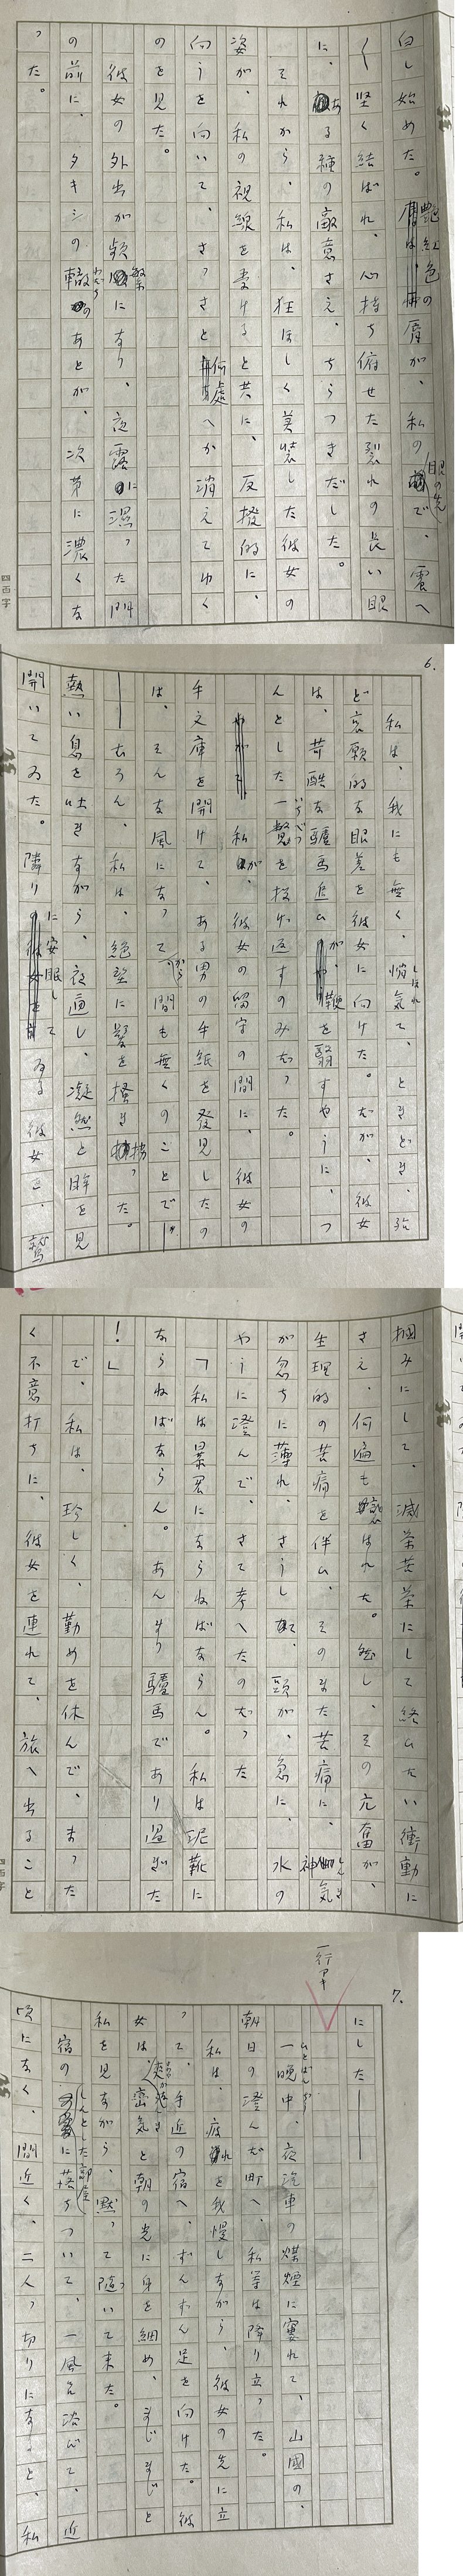 白し始めた。艶紅色の唇が、私の眼の先で、震へ
〱堅く結ばれ、心持ち俯せた裂れの長い眼
に、ある種の敵意さえ、ちらつきだした。
それから、私は、狂ほしく美装した彼女の
姿が、私の視線を妻けると共に、反撥的に、
向うを向いて、さつさと何處へか消えてゆく
のを見た。
彼女の外出が頻繁になり、夜露に濕つた門
の前に、タキシの轍わだちのあとが、次第に濃くな
つた。
四百字
6.
私は、我にも無く、悄気しほれて、ときどき、殆
ど哀願的な眼差を彼女に向けた。だが、彼女
は、苛酷な驢馬追ひが、鞭を翳すやうに、つ
んとした一瞥いちべつを投げ返すのみだつた。
私が、彼女の留守の間に、彼女の
手文庫を開けて、ある男の手紙を發見したの
は、そんな風になつてから間も無くのことで、
――むろん、私は、絶望に髪を掻き拗つた。
熱い息を吐きながら、夜通し、凝然と眸を見
開いてゐた。隣りに安眠してゐる彼女を、鷲
摑みにして、滅茶苦茶にして終ひたい衝動に
さえ、何遍も襲はれた。然し、その亢奮が、
生理的の苦痛を伴ひ、そのまた苦痛に、神気しんき
が忽ちに薄れ、さうして、頭が、急に、水の
やうに澄んで、さて考へたのだつた
「私は暴君にならねばならん。私は泥靴に
ならねばならん。あんまり驢馬であり過ぎた
!」
で、私は、珍しく、勤めを休んで、まつた
く不意打ちに、彼女を連れて、旅へ出ること
7.
一行アキ
にした――
一晩中ひとばんぢう、夜汽車の煤煙に窶れて、山國の、
朝日の澄んだ町へ、私等は降り立つた。
私は、疲れを我慢しながら、彼女の先に立
つて、手近の宿へ、ずんずん足を向けた。彼
女は、爽かな空気と朝の光に身を細め、まじまじと
私を見ながら、黙つて随いて来た。
宿のしんとした部屋に落ちついて、一風呂浴びて、近
頃になく、間近く、二人つ切りになると、私